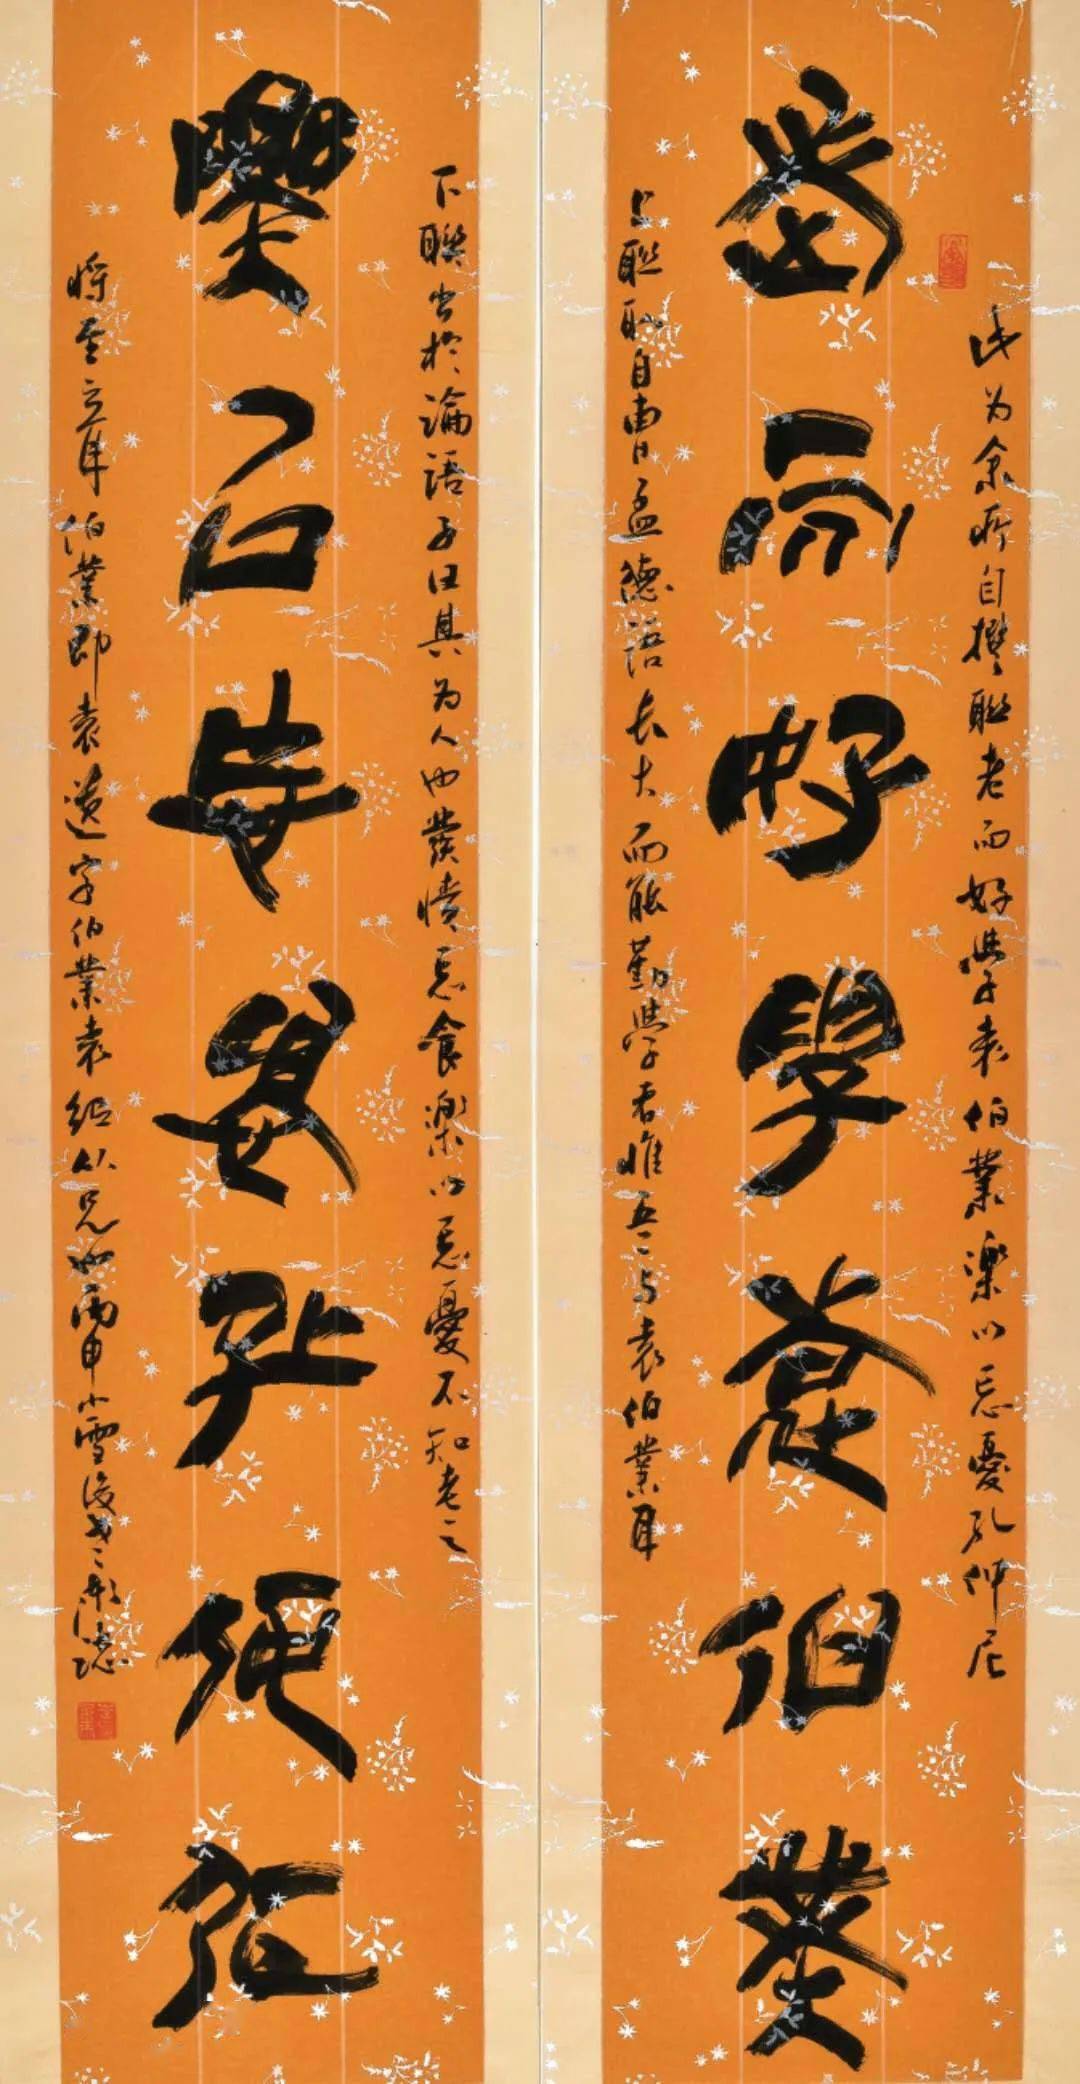 老而好學袁伯業
樂以忘憂孔仲尼
此为余所自撰聯老而好學袁伯業樂以忘憂孔仲尼
上聯取自曹孟德語长大而能勤學者惟吾与袁伯業耳
下聯出於論語子曰其为人也發憤忘食樂以忘憂不知老之
將至云耳伯業即袁遺字伯業袁紹从兄也丙申小雪後